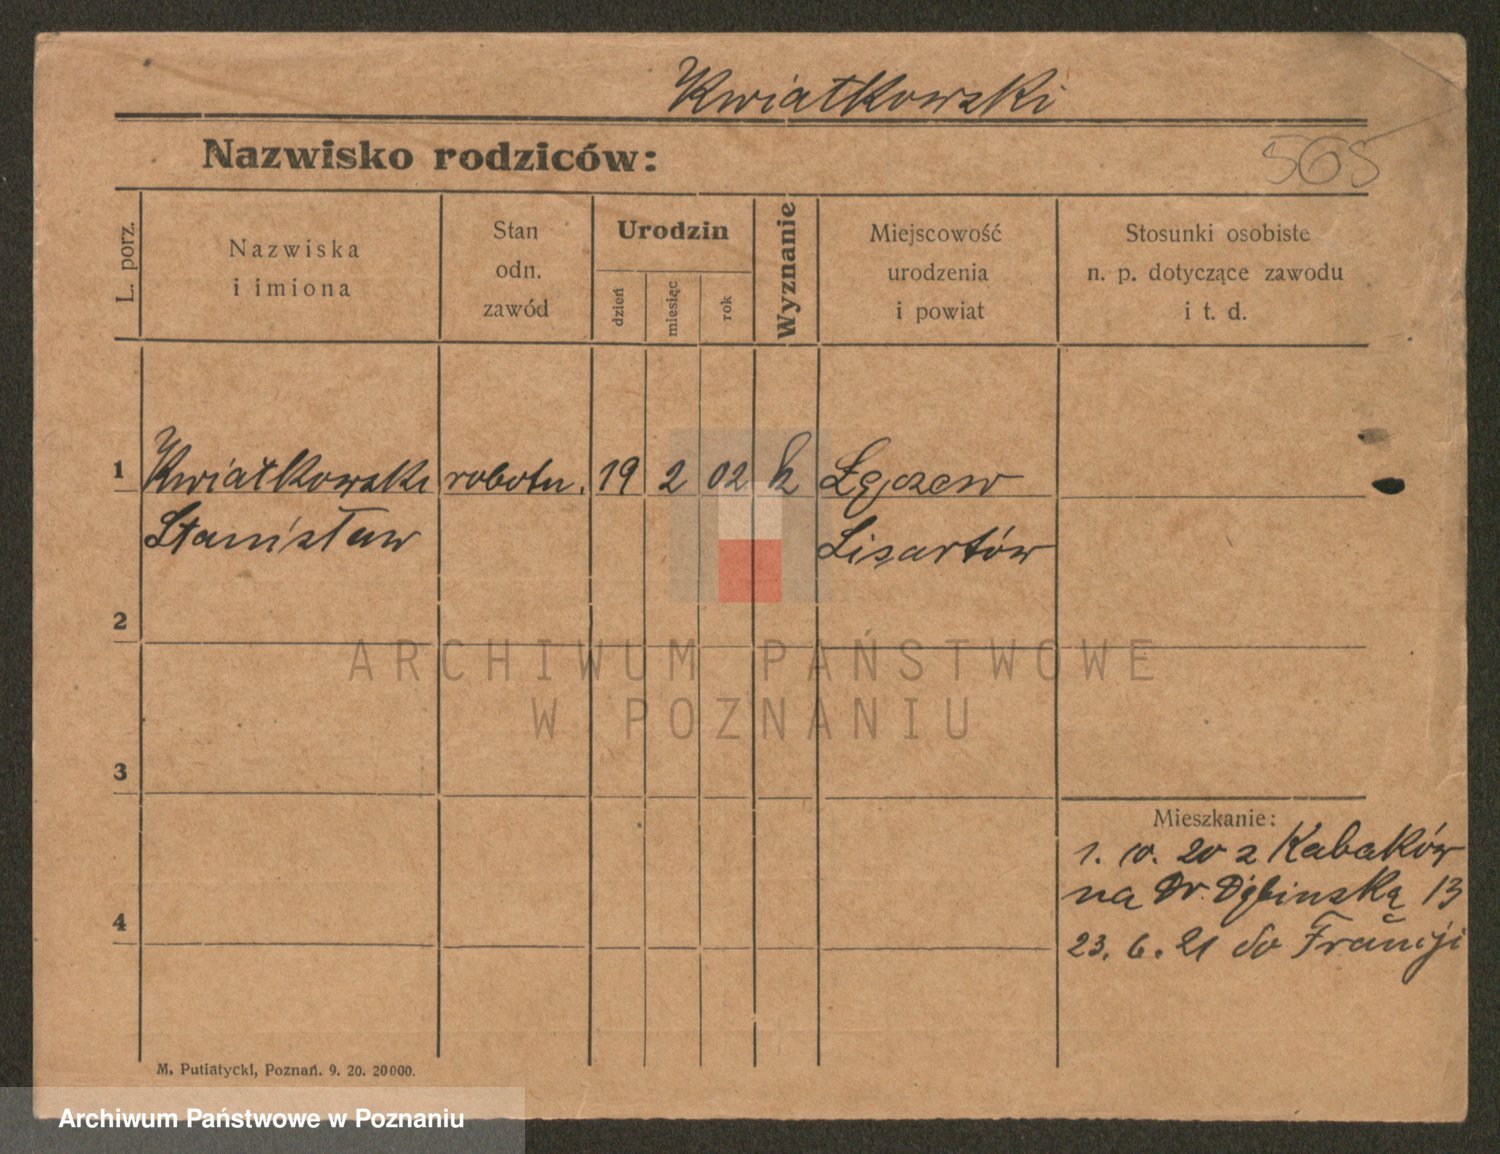 Kwiatkowski
Nazwisko rodziców:
565
L. porz.
Nazwiska
i imiona
Stan
odn.
zawód
Urodzin
dzień
miesiąc
rok
Wyznanie
Miejscowość
urodzenia
i powiat
Stosunki osobiste
n. p. dotyczące zawodu
i t. d.
1 Kwiatkowski robotn. 19 2 02 k
Stanisław
2
ARCHIWUM PAŃSTWOWE
W POZNANIU
3
Mieszkanie:
20 z Kabaków
na Dr. Dębinską 13
4
23. 6. 21 do Francji
M. Putiatycki, Poznań. 9. 20. 20000.
Archiwum Państwowe w Poznaniu